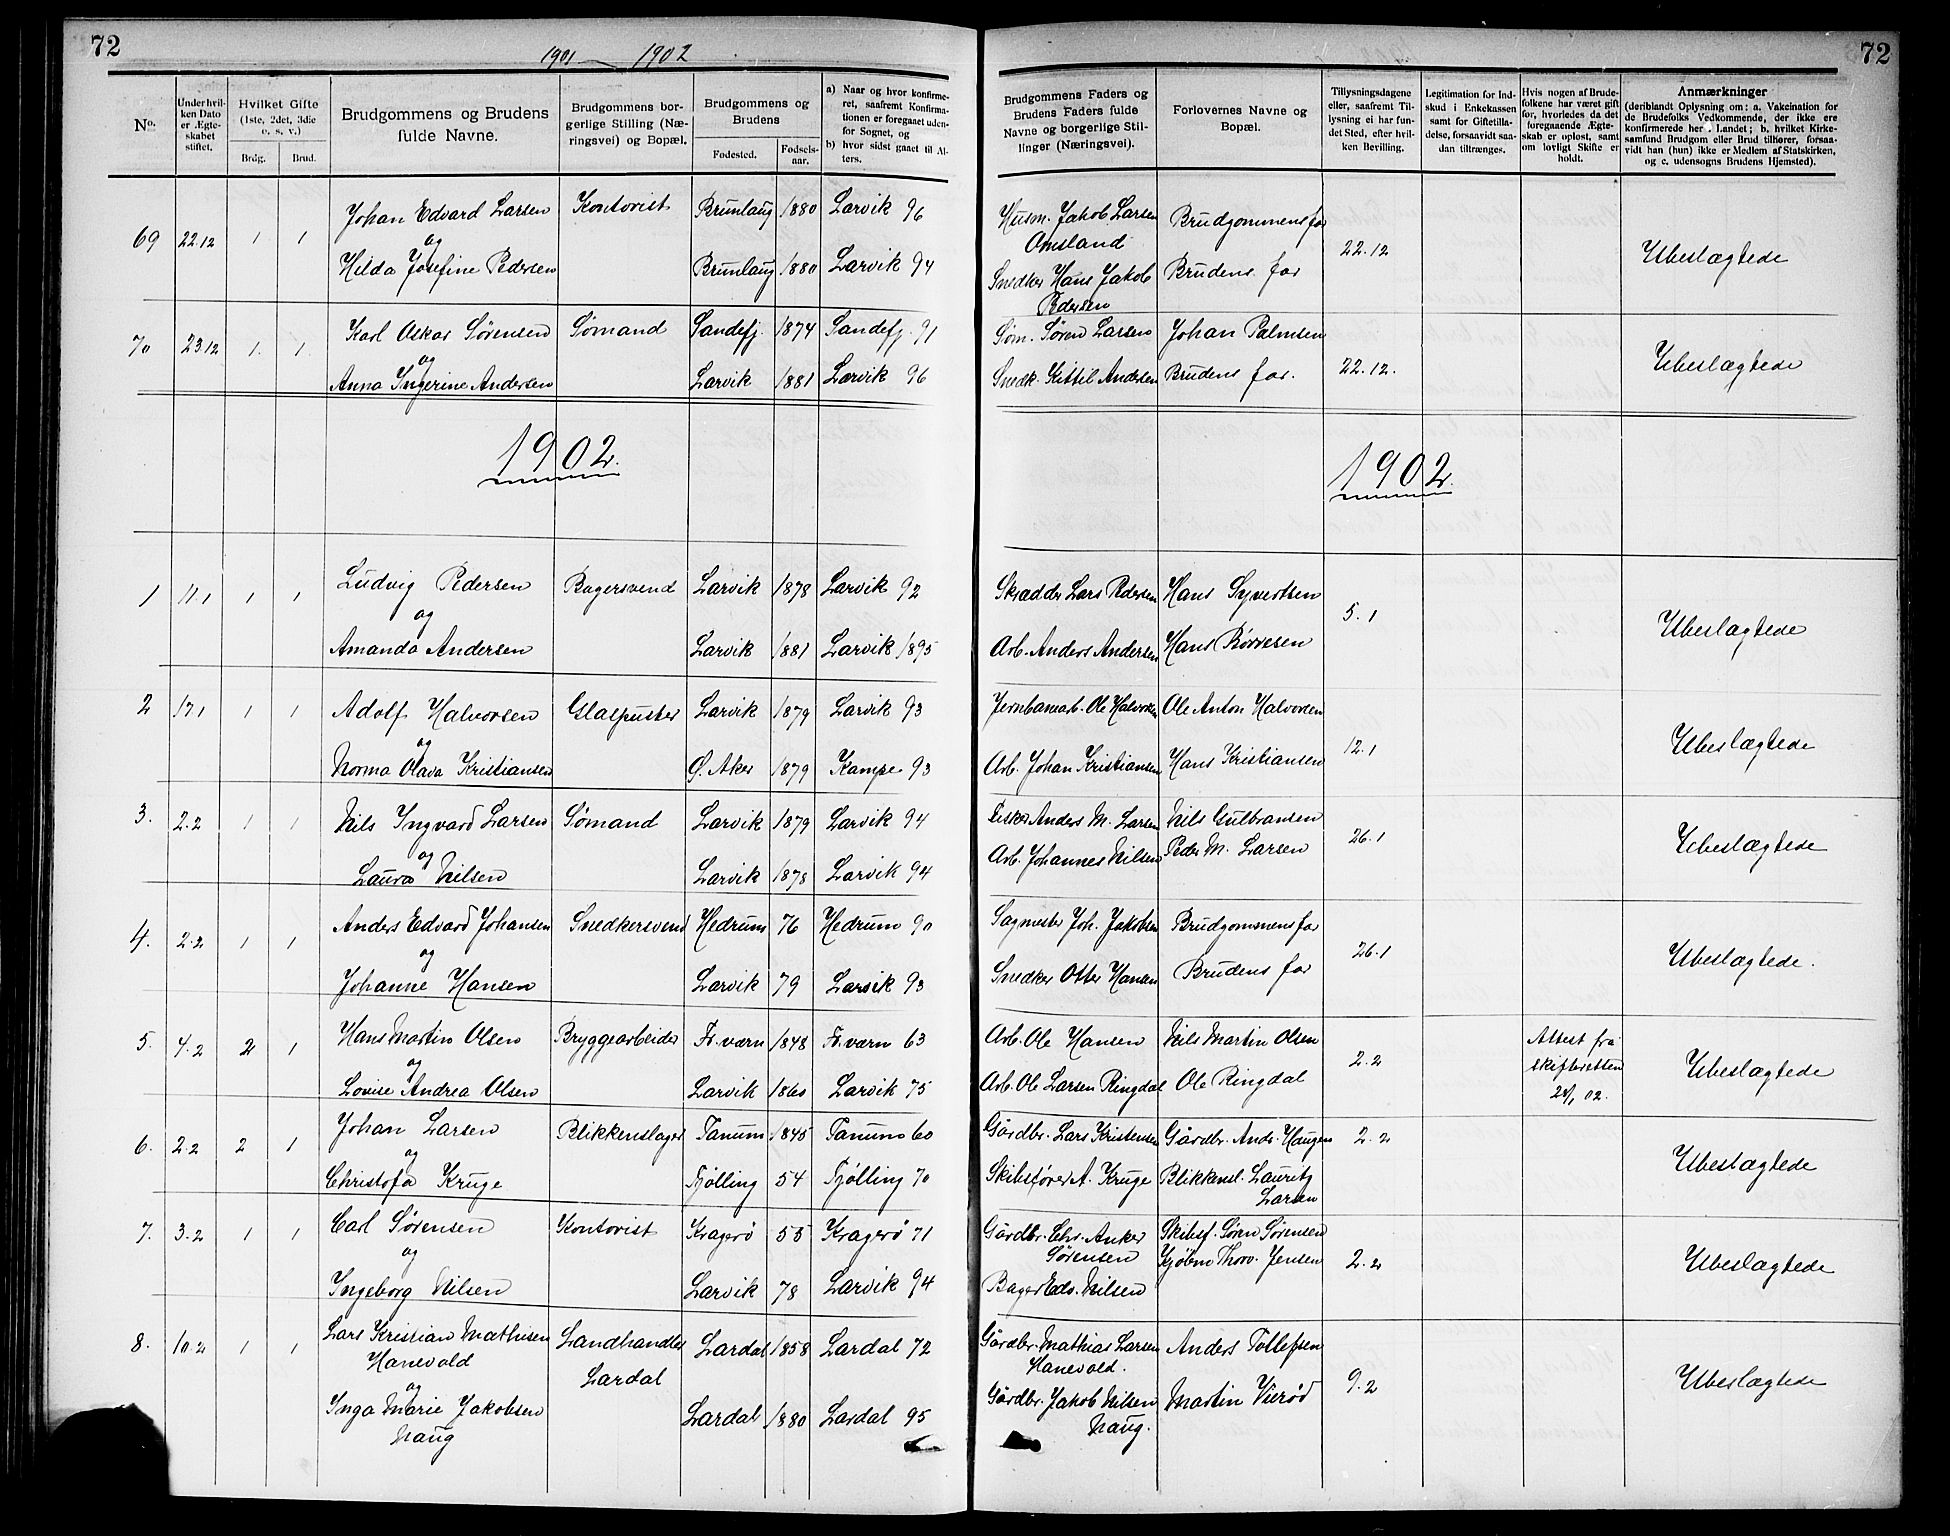 72
1901 — 1902
No.
Under hvilken Dato er Ægteskabet stiftet.
Hvilket Gifte (1ste, 2det, 3die o. s. v.)
Brdg.
Brud.
Brudgommens og Brudens fulde Navne.
Brudgommens borgerlige Stilling (Næringsvei) og Bopæl.
Brudgommens og Brudens
Fødested.
Fødselsaar.
a) Naar og hvor konfirmeret, saafremt Konfirmationen er foregaaet udenfor Sognet, og
b) hvor sidst gaaet til Alters.
69 22.12 1 1 Johan Edvard Larsen Kontorist Brunlaug 1880 Larvik 96
og
Hilda Josefine Pedersen Brunlaug 1880 Larvik 94
70 23.12 1. 1. Karl Oskar Sørensen Sømand Sandefj. 1874 Sandefj. 91
og
Anna Ingerine Andersen Larvik 1881 Larvik 96
1902.
1 11 1 1 1 Ludvig Pedersen Bagersvend Larvik 1878 Larvik 92
og
Amanda Andersen Larvik 1881 Larvik 1895
2 17 1 1 1 Adolf Halvorsen Glaspuster Larvik 1879 Larvik 93
og
Norma Olava Kristiansen Ø. Aker 1879 Kampe 93
3. 2.2 1 1 Nils Ingvard Larsen Sømand Larvik 1879 Larvik 94
og
Laura Nilsen Larvik 1878 Larvik 94
4. 2.2 1 1 Anders Edvard Johansen Snedkersvend Hedrum 76 Hedrum 90
og
Johanne Hansen Larvik 79 Larvik 93
5. 4.2 2 1 Hans Martin Olsen Bryggearbeider Fr.værn 1848 Fr.værn 63
og
Lovise Andrea Olsen Larvik 1860 Larvik 75
6. 2.2 2 1 Johan Larsen Blikkenslager Tanum 1845 Tanum 60
og
Christofa Kruge Tjølling 54 Tjølling 70
7. 3.2 1 1 Carl Sørensen Kontorist Kragerø 55 Kragerø 71
og
Ingeborg Nilsen Larvik 78 Larvik 94
8. 10.2 1 1 Lars Kristian Mathisen Landhandler Lardal 1858 Lardal 72
Hanevold Lardal
og
Inga Marie Jakobsen Lardal 1880 Lardal 95
Haug
72
Brudgommens Faders og Brudens Faders fulde Navne og borgerlige Stillinger (Næringsvei).
Forlovernes Navne og Bopæl.
Tillysningsdagene eller, saafremt Tillysning ei har fundet Sted, efter hvilken Bevilling.
Legitimation for Indskud i Enkekassen samt for Giftetilladelse, forsaavidt saadan tiltrænges.
Hvis nogen af Brudefolkene har været gift før, hvorledes da det foregaaende Ægteskab er opløst, samt om lovligt Skifte er holdt.
Anmærkninger
(deriblandt Oplysning om: a. Vakcination for de Brudefolks Vedkommende, der ikke ere konfirmerede her i Landet; b. hvilket Kirkesamfund Brudgom eller Brud tilhører, forsaavidt han (hun) ikke er Medlem af Statskirken, og c. udensogns Brudens Hjemsted).
Husm. Jakob Larsen Brudgommens far
Omsland 22.12 Ubeslægtede
Snedker Hans Jakob Brudens far
Pedersen
Søm. Søren Larsen Johan Palmsen
Snedk. Kittil Andersen Brudens far. 22.12. Ubeslægtede
1902.
Skrædder Lars Pedersen Hans Syvertsen
5.1 Ubeslægtede
Arb. Anders Andersen Hans Børresen
Jernbanearb. Ole Halvorsen Ole Anton Halvorsen
12.1 Ubeslægtede
Arb. Johan Kristiansen Hans Kristiansen
Fisker Anders M. Larsen Nils Gulbransen
26.1 Ubeslægtede
Arb. Johannes Nilsen Peder M. Larsen
Sagmester Joh. Jakobsen Brudgommens far
26.1 Ubeslægtede.
Snedker Otter Hansen Brudens far
Arb. Ole Hansen Nils Martin Olsen Attest fra
2.2 skifteretten Ubeslægtede
Arb. Ole Larsen Ringdal Ole Ringdal 02.
Gårdbr. Lars Kristensen Gårdbr. Andr. Haugen 2.2
Skibsfører A. Kruge Blikkensl. Lauritz Ubeslægtede
Larsen
Gårdbr. Chr. Anker Skibsf. Søren Sørensen
Sørensen Kjøbm Thorv. Jensen 2.2 Ubeslægtede
Bager Edv. Nilsen
Gårdbr. Mathias Larsen Anders Tollefsen
Hanevold.
9.2 Ubeslægtede
Gårdbr. Jakob Nilsen Martin Vierød
Haug.